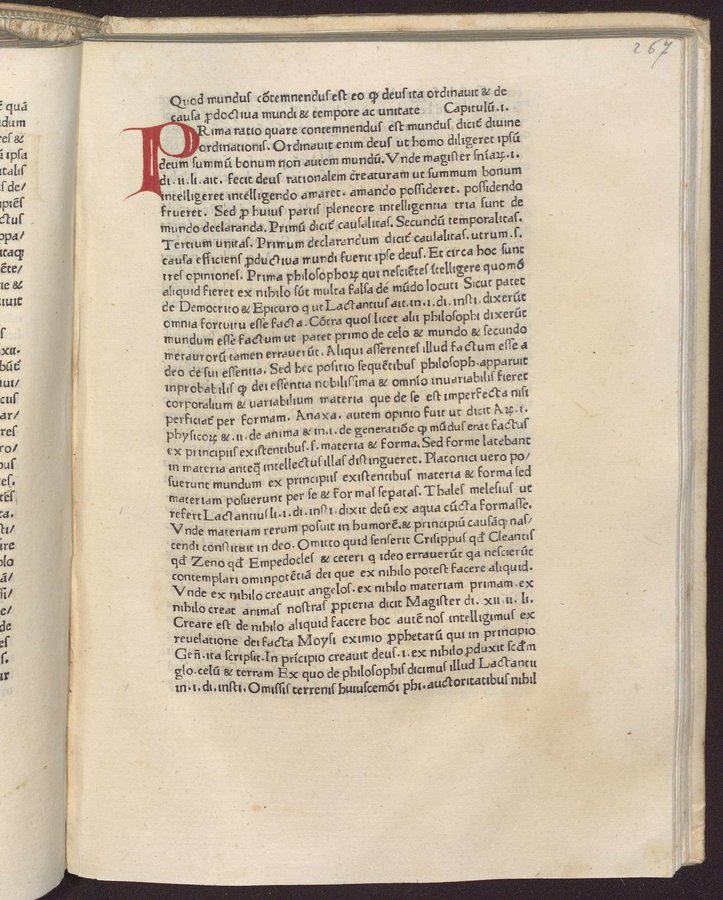 267
Quod mundus cõtemnendus est eo ꝙ deus ita ordinauit & de
causa ꝓductiua mundi & tempore ac unitate Capitulũ.1.
PRima ratio quare contemnendus est mundus dicit̃ diuine
ordinationis. Ordinauit enim deus ut homo diligeret ipsũ
deum summũ bonum non autem mundũ. Vnde magister sñiaꝝ.1.
di.ii.li.ait. fecit deus rationalem creaturam ut summum bonum
intelligeret intelligendo amaret. amando possideret. possidendo
frueret. Sed ꝓ huius partis pleneore intelligentia tria sunt de
mundo declaranda. Primũ dicit̃ causalitas. Secundũ temporalitas.
Tertium unitas. Primum declarandum dicit̃ causalitas. utrum.s.
causa efficiens ꝓductiua mundi fuerit ipse deus. Et circa hoc sunt
tres opiniones. Prima philosophoꝝ qui nesciẽtes ĩtelligere quomõ
aliquid fieret ex nihilo sũt multa falsa de mũdo locuti Sicut patet
de Democrito & Epicuro q ut Lactantius ait.in.1.di.insti.dixerũt
omnia fortuitu esse facta. Cõtra quos licet alii philosophi dixerũt
mundum esse factum ut patet primo de celo & mundo & secundo
metaurorũ tamen errauerũt. Aliqui asserentes illud factum esse a
deo de sui essentia. Sed hec positio sequẽtibus philosoph.apparuit
inprobabilis ꝙ dei essentia nobilissima & omnĩo inuariabilis fieret
corporalium & uariabilium materia que de se est imperfecta nisi
perficiat̃ per formam. Anaxa. autem opinio fuit ut dicit Aꝝ.1.
physicoꝝ & .ii.de anima & in.1.de generatiõe ꝙ mũdus erat factus
ex principiis existentibus.s.materia & forma. Sed forme latebant
in materia anteq̃ intellectus illas distingueret. Platonici uero po/
suerunt mundum ex principiis existentibus materia & forma sed
materiam posuerunt per se & formas sepatas. Thales melesius ut
refert Lactantius li.1.di.insti.dixit deũ ex aqua cũcta formasse.
Vnde materiam rerum posuit in humore.& principiũ causãq; nas/
cendi constituit in deo. Omitto quid senserit Crisippus qď Cleantis
qď Zeno qď Empedocles & ceteri q ideo errauerũt qa nescierũt
contemplari ominpotẽtiã dei que ex nihilo potest facere aliquid.
Vnde ex nihilo creauit angelos.ex nihilo materiam primam.ex
nihilo creat animas nostras ꝓpteria dicit Magister di. xii ii. li.
Creare est de nihilo aliquid facere hoc autẽ nos intelligimus ex
reuelatione dei facta Moysi eximio ꝓphetarũ qui in principio
Geñ.ita scripsit.In prĩcipio creauit deus.i.ex nihilo ꝓduxit scďm
glo.celũ & terram Ex quo de philosophis dicimus illud Lactantii
in.1.di.insti.Omissis terrenis huiuscemõi phi.auctoritatibus nihil